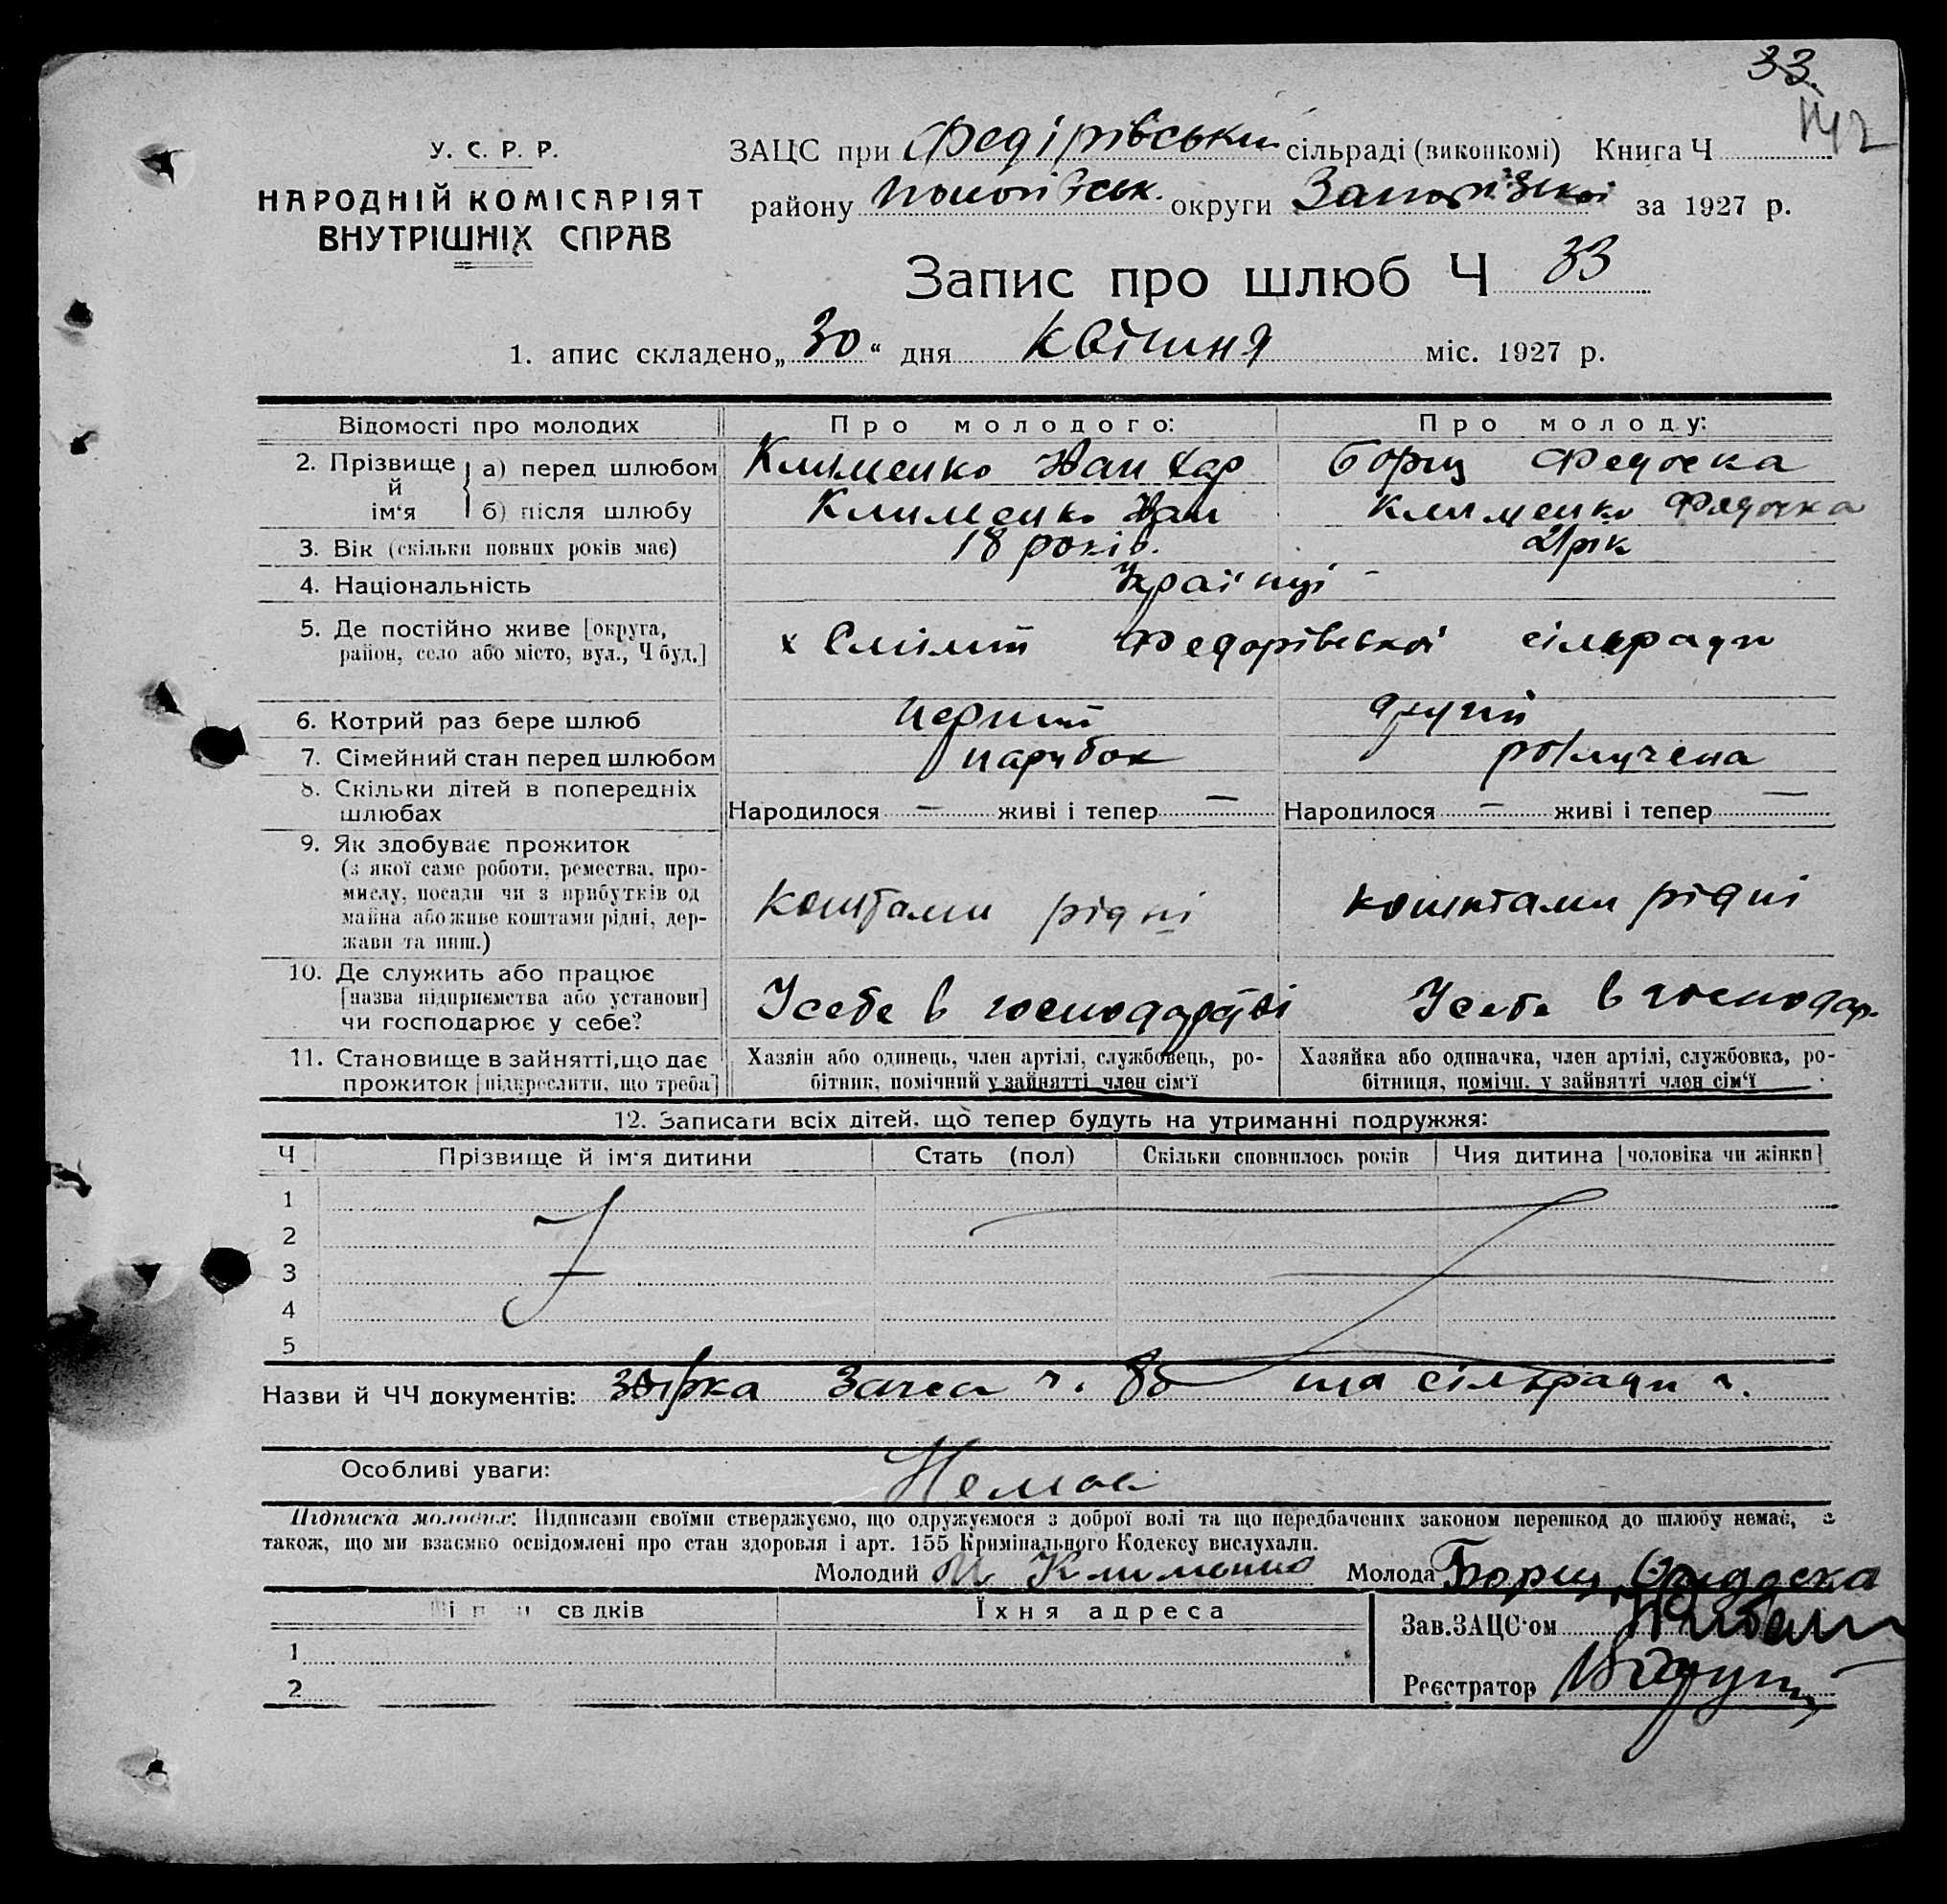 33.
142
У. С. Р. Р.
НАРОДНІЙ КОМІСАРІЯТ
ВНУТРІШНІХ СПРАВ
ЗАЦС при Федірівській сільраді (виконкомі) Книга Ч
району Пологівськ. округи Запорізької за 1927 р.
Запис про шлюб Ч 33
1. апис складено „30“ дня Квітня міс. 1927 р.
Відомості про молодих Про молодого: Про молоду:
2. Прізвище й ім‘я а) перед шлюбом Клименко Иан Борщ Федоска
б) після шлюбу Клименко Иан Клименко Федоска
3. Вік (скільки повних років має) 18 років. 21 рік
4. Національність Українці -
5. Де постійно живе [округа,
район, село або місто, вул., Ч буд.] х Федорівської сільради
6. Котрий раз бере шлюб перший другий
7. Сімейний стан перед шлюбом парубок розлучена
8. Скільки дітей в попередніх
шлюбах Народилося — живі і тепер — Народилося — живі і тепер —
9. Як здобуває прожиток
(з якої саме роботи, ремества, про-
мислу, посади чи з прибутків од
майна або живе коштами рідні, дер-
жави та инш.) коштами рідні коштами рідні
10. Де служить або працює
[назва підприємства або установи]
чи господарює у себе? У себе в господарстві У себе в господар.
11. Становище в зайнятті, що дає
прожиток [підкреслити, що треба]
Хазяін або одинець, член артілі, службовець, ро-
бітник, помічний у зайнятті член сім‘ї
Хазяйка або одиначка, член артілі, службовка, ро-
бітниця, помічн. у зайнятті член сім‘ї
12. Записати всіх дітей, що тепер будуть на утриманні подружжя:
Ч Прізвище й ім‘я дитини Стать (пол) Скільки сповнилось років Чия дитина [чоловіка чи жінки]
1
2
3
4
5
Назви й ЧЧ документів: Загса ч. 85 сільради ч.
Особливі уваги: Немає
Підписка молодих: Підписами своїми стверджуємо, що одружуємося з доброї волі та що передбачених законом перешкод до шлюбу немає, а
також, що ми взаємно освідомлені про стан здоровля і арт. 155 Кримінального Кодексу вислухали.
Молодий И Клименко Молода Борщ Федоска
свідків Їхня адреса
Зав. ЗАЦС‘ом
1
Реєстратор
2